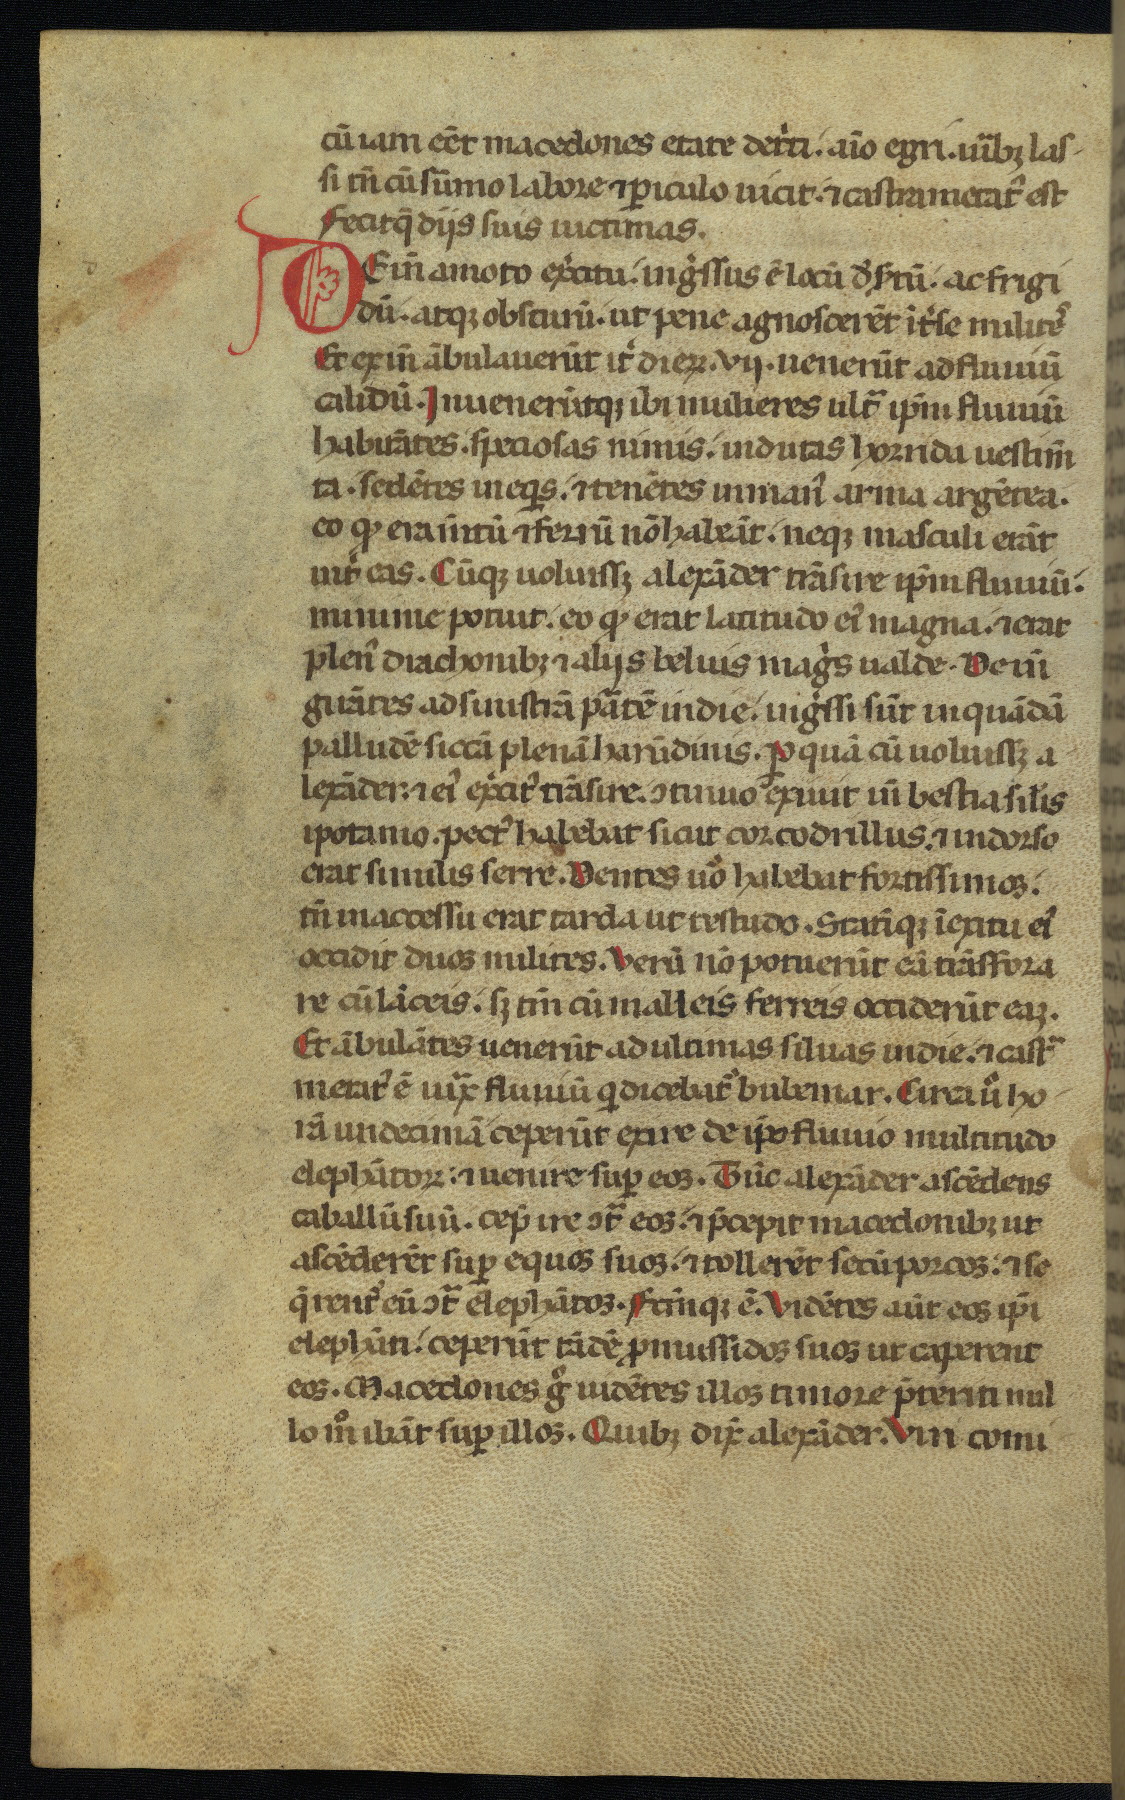 cū iam eēt macedones etate det̾ti. aīo egri. uir̄ibꝫ las-
si tn̄ cū sūmo labore ⁊ ꝑiculo uicit. ⁊ castrametatꝰ est
fecitq̄ diis suis uictimas.
DEīn amoto ex̾citu. ing̾ssus ē locū d̾s̾tū. ac frigi
dū. atqꝫ obscurū. ut pene agnoscerēt īt̾se militēs
Et exīn ābulauerūt it̾ dieꝝ. vij. uenerūt ad fluuiū
calidū. Inuenerūtqꝫ ibi mulieres ult̾ ip̄m fluuiū
habitātes. speciosas nimis. indutas horrida uestim̄
ta. sedētes in eqͥs. ⁊ tenētes in manꝰ arma argētea.
eo qꝫ eram̄tū ⁊ ferrū nō habeāt. neqꝫ masculi erāt
int̾ eas. Cūqꝫ uoluissꝫ alexāder trāsire ip̄m fluuiū.
minime potuit. eo qꝫ erat latitudo eiꝰ magna. ⁊ erat
plenꝰ drachonibꝫ ⁊ alijs beluis mag̾s ualde. Dein
girātes ad sinistrā ꝑatē indie. ing̾ssi sūt in quādā
palludē siccā plenā harūdinis. Ꝑ quā cū uoluissꝫ a
lexāder. ⁊ eiꝰ ex̾citꝰ trāsire. ꝯtinuo exiuit in̄ bestia sil̄is
ipotamo. pectꝰ habebat sicut corcodrillus. ⁊ in dorso
erat similis serre. Dentes uō habebat fortissimos.
tn̄ in accessu erat tarda ut testudo. Statīqꝫ ī exitu eiꝰ
occidit duos milites. Verū nō potuerūt eā trāsfora
re cū lāceis. sꝫ tn̄ cū malleis ferreis occiderūt eaꝫ.
Et ābulātes uenerūt ad ultimas siluas indie. ⁊ cast̾
metatꝰ ē iux̾ fluuiū q̄ dicebatꝰ bubemar. Circa ū ho-
rā undecimā ceperūt exire de ip̄o fluuio multitudo
elephātoꝝ. ⁊ uenire suꝑ eos. Tūc alexāder ascēdens
caballū suū. cep̄ ire ꝯt̾ eos. ⁊ p̄cepit macedonibꝫ ut
ascēderēt suꝑ equos suos. ⁊ tollerēt secū porcos. ⁊ se
q̄rentꝰ eū ꝯt̾ elephātos. Fctūqꝫ ē. Vidētes aūt eos ip̄i
elephāti. ceperūt tādē ꝓmussidos suos ut caperent
eos. Macedones gͦ uidētes illos timore p̄teriti nul
lo mͦ ibāt suꝑ illos. Quibꝫ dix̾ alexāder. Viri comi